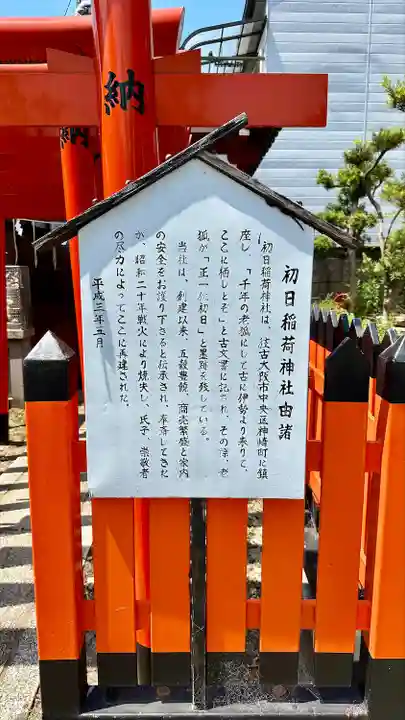 納
納
初日稲荷神社由諸
初日稲荷神社は、往古大阪市中央区神崎町に鎮
座し、「千年の老狐にして古に伊勢より来りて、
ここに栖しとぞ」と古文書に記され、その後、老
狐が「正一位初日」と墨跡を残している。
当社は、創建以来、五穀豊饒、商売繁盛と家内
の安全をお護り下さると伝承され、奉斎してきた
が、昭和二十年戦火により焼失し、氏子、崇敬者
の尽力によってここに再建された。
平成三年五月